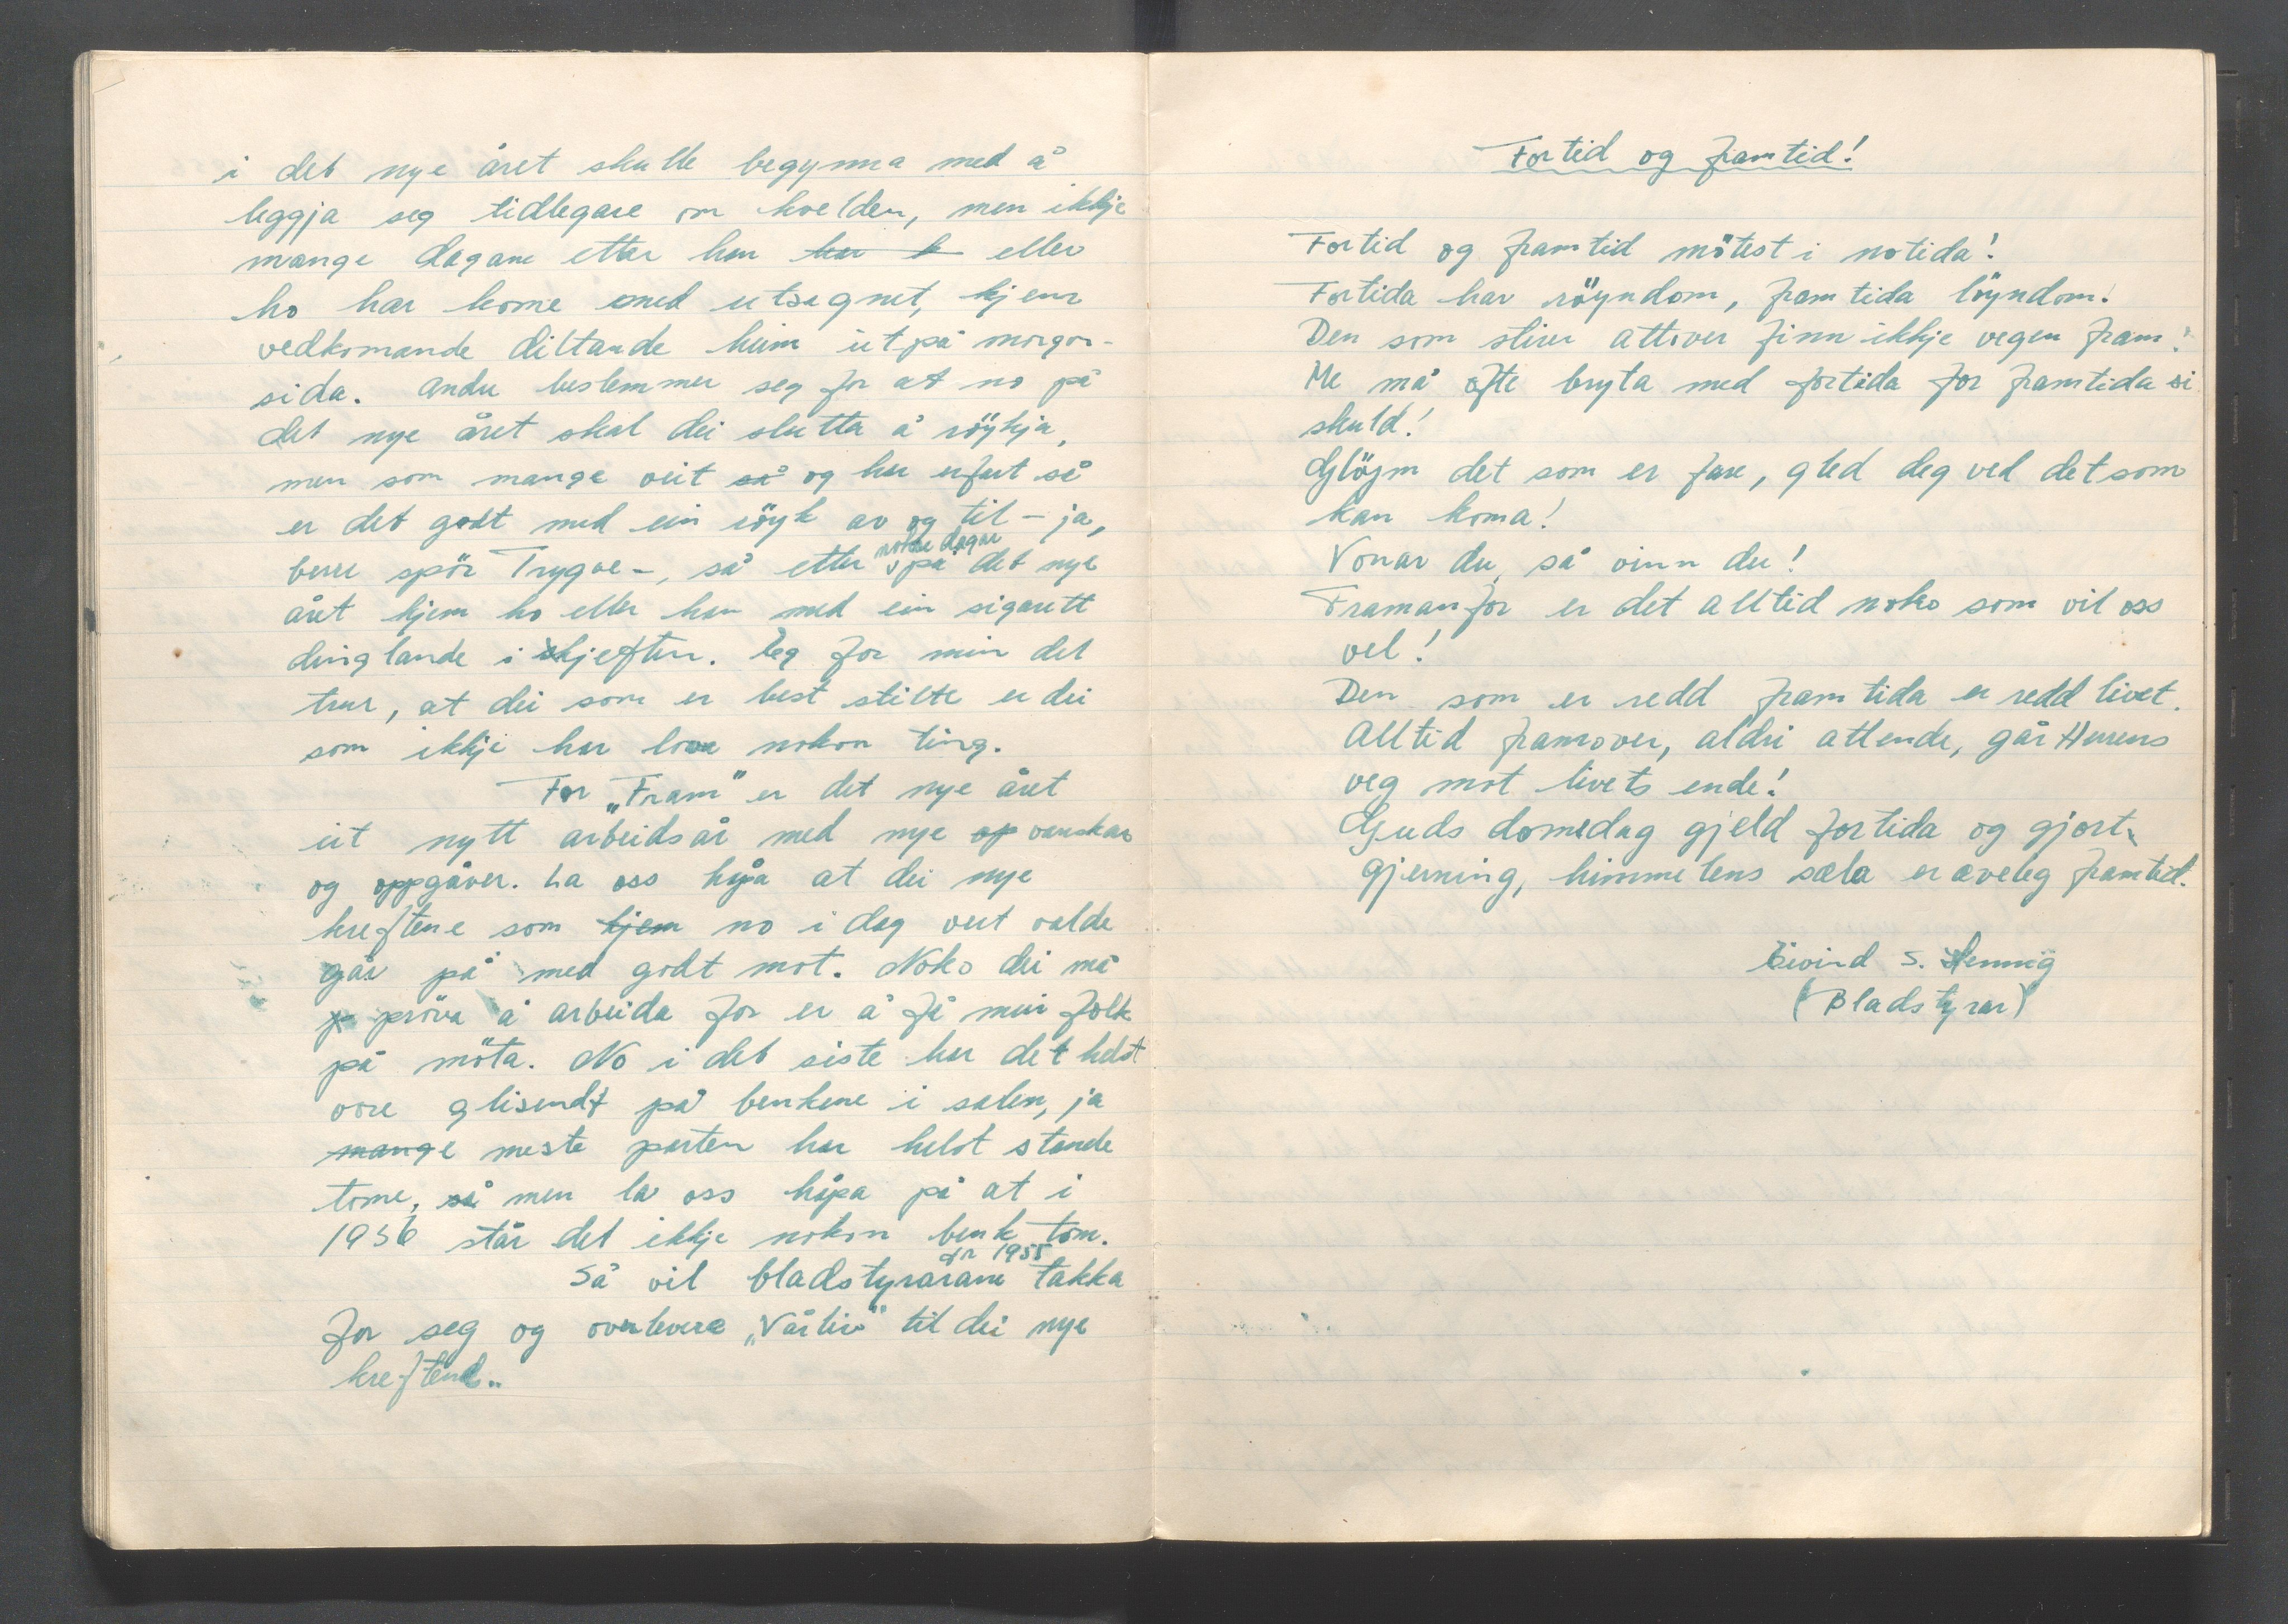 i det nye året skulle begynna med å
leggja seg tidlegare om kvelden, men ikkje
mange dagane etter han har h eller
ho har kome med utsegnet, kjem
vedkomande diltande heim ut på morgon-
sida. Andre bestemmer seg for at no på
det nye året skal dei slutta å röykja,
men som mange veit så og har erfart så
er det godt med ein röyk av og til – ja,
berre spör Trygve –, så etter nokre dagar på det nye
året kjem ho eller han med ein sigarett
dinglande i kjeften. Eg for min del
trur, at dei som er best stilte er dei
som ikkje har lova nokon ting.
For „Fram" er det nye året
eit nytt arbeidsår med nye op vanskar
og oppgåver. La oss håpa at dei nye
kreftene som kjem no i dag vert valde
går på med godt mot. Noko dei må
p pröva å arbeida for er å få meir folk
på möta. No i det siste har det helst
vore glisendt på benkene i salen, ja
mange meste parten har helst stande
tome, så men la oss håpa på at i
1956 står det ikkje nokon benk tom.
Så vil bladstyrarane for 1955 takka
for seg og overlevere „Vårliv" til dei nye
kreftene..
Fortid og framtid!
Fortid og framtid mötest i notida!
Fortida har röyndom, framtida löyndom!
Den som stirer attover finn ikkje vegen fram!
Me må ofte bryta med fortida for framtida si
skuld!
Glöym det som er fare, gled deg ved det som
kan koma!
Vonar du, så vinn du!
Framanfor er det alltid noko som vil oss
vel!
Den som er redd framtida er redd livet.
Alltid framover, aldri attende, går Herrens
veg mot livets ende!
Guds domedag gjeld fortida og gjort
gjerning, himmelens sæla er æveleg framtid.
Eivind S. Hennig
(Bladstyrar)